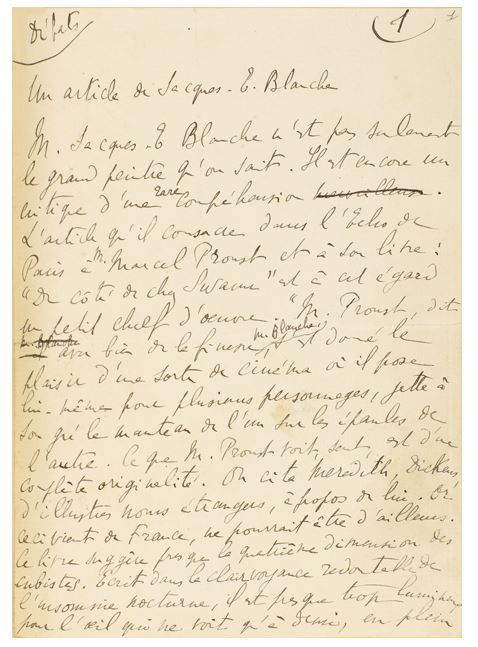 Débats
1
Un article de Jacques-E. Blanche
M. Jacques-E Blanche n'est pas seulement
le grand peintre qu'on sait. Il est encore un
critique d'une rare compréhension merveilleuse.
L'article qu'il consacre dans l'Echo de
Paris à M. Marcel Proust et à son livre :
"Du côté de chez Swann" est à cet égard
un petit chef d'oeuvre. "M. Proust, dit
M. Blanche avec bien de la finesse, s'est donné le
plaisir d'une sorte de cinéma où il pose
lui-même pour plusieurs personnages, jette à
son gré le manteau de l'un sur les épaules de
l'autre. Ce que M. Proust voit, sent, est d'une
complète originalité. On cita Meredith, Dickens,
d'illustres noms étrangers, à propos de lui. Or
ceci vient de France, ne pourrait être d'ailleurs.
Ce livre suggère presque la quatrième dimension des
cubistes. Ecrit dans la clairvoyance redoutable de
l'insomnie nocturne, il est presque trop lumineux
pour l'œil qui ne voit qu'à demi, en plein